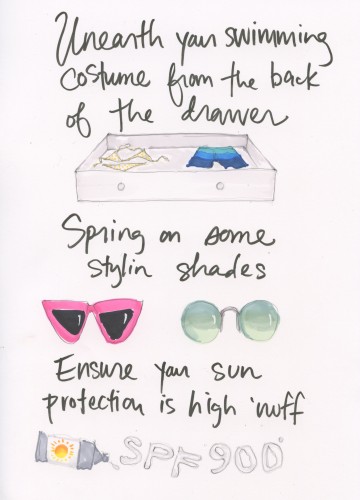 Unearth your swimming
costume from the back
of the drawer
Spring on some
stylin shades
Ensure your sun
protection is high 'nuff
SPF 900°